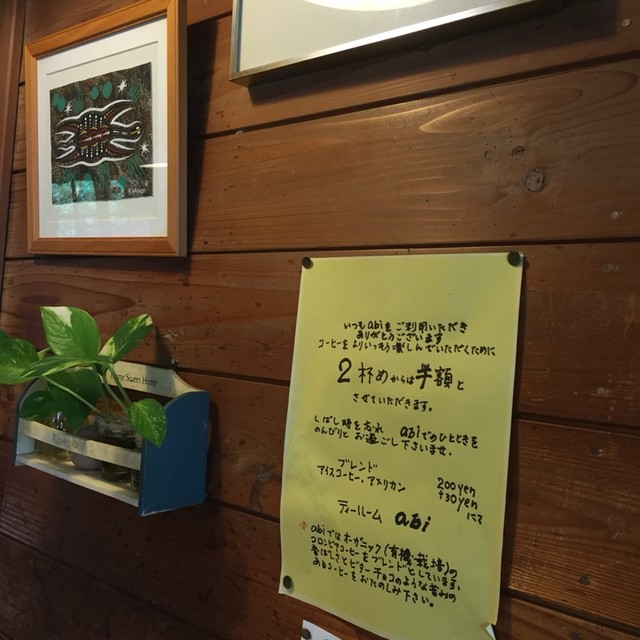 いつもabiを ご利用いただき
ありがとうございます
コーヒーを よりいっそう楽しんでいただくために
2杯めからは半額と
させていただきます。
しばし時を忘れ abiでのひとときを
のんびりと お過ごし下さいませ。
ブレンド 200yen
アイスコーヒー、アメリカン +30yen
にて
ティールーム abi
abiではオーガニック(有機栽培)の
コロンビアコーヒーをブレンドとしています。
香ばしさとビターチョコのような苦みの
あるコーヒーをおたのしみ下さい。
Sweet Home